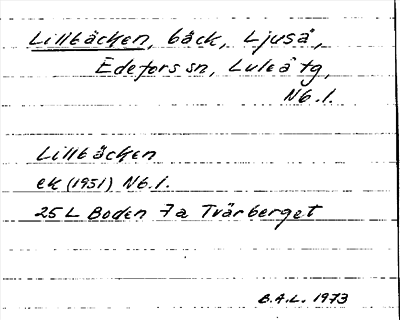 Lillbäcken, bäck, Ljuså,
Edefors sn, Luleå tg,
Nb.l.
Lillbäcken
ek (1951) Nb.l.
25L Boden 7a Tvärberget
B.A.L. 1973